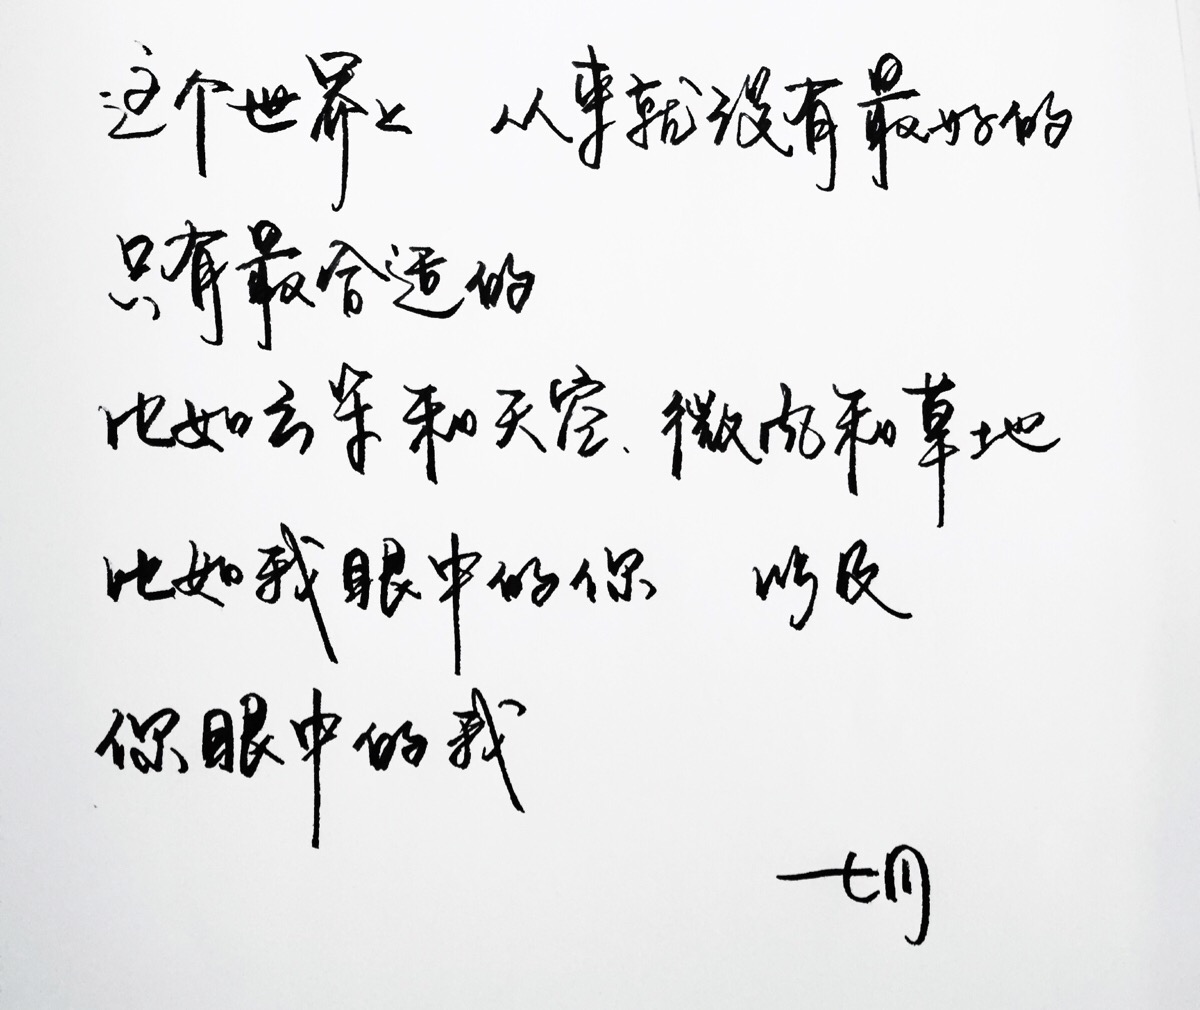 这个世界上 从来就没有最好的
只有最合适的
比如云朵和天空、微风和草地
比如我眼中的你 以及
你眼中的我
一七月